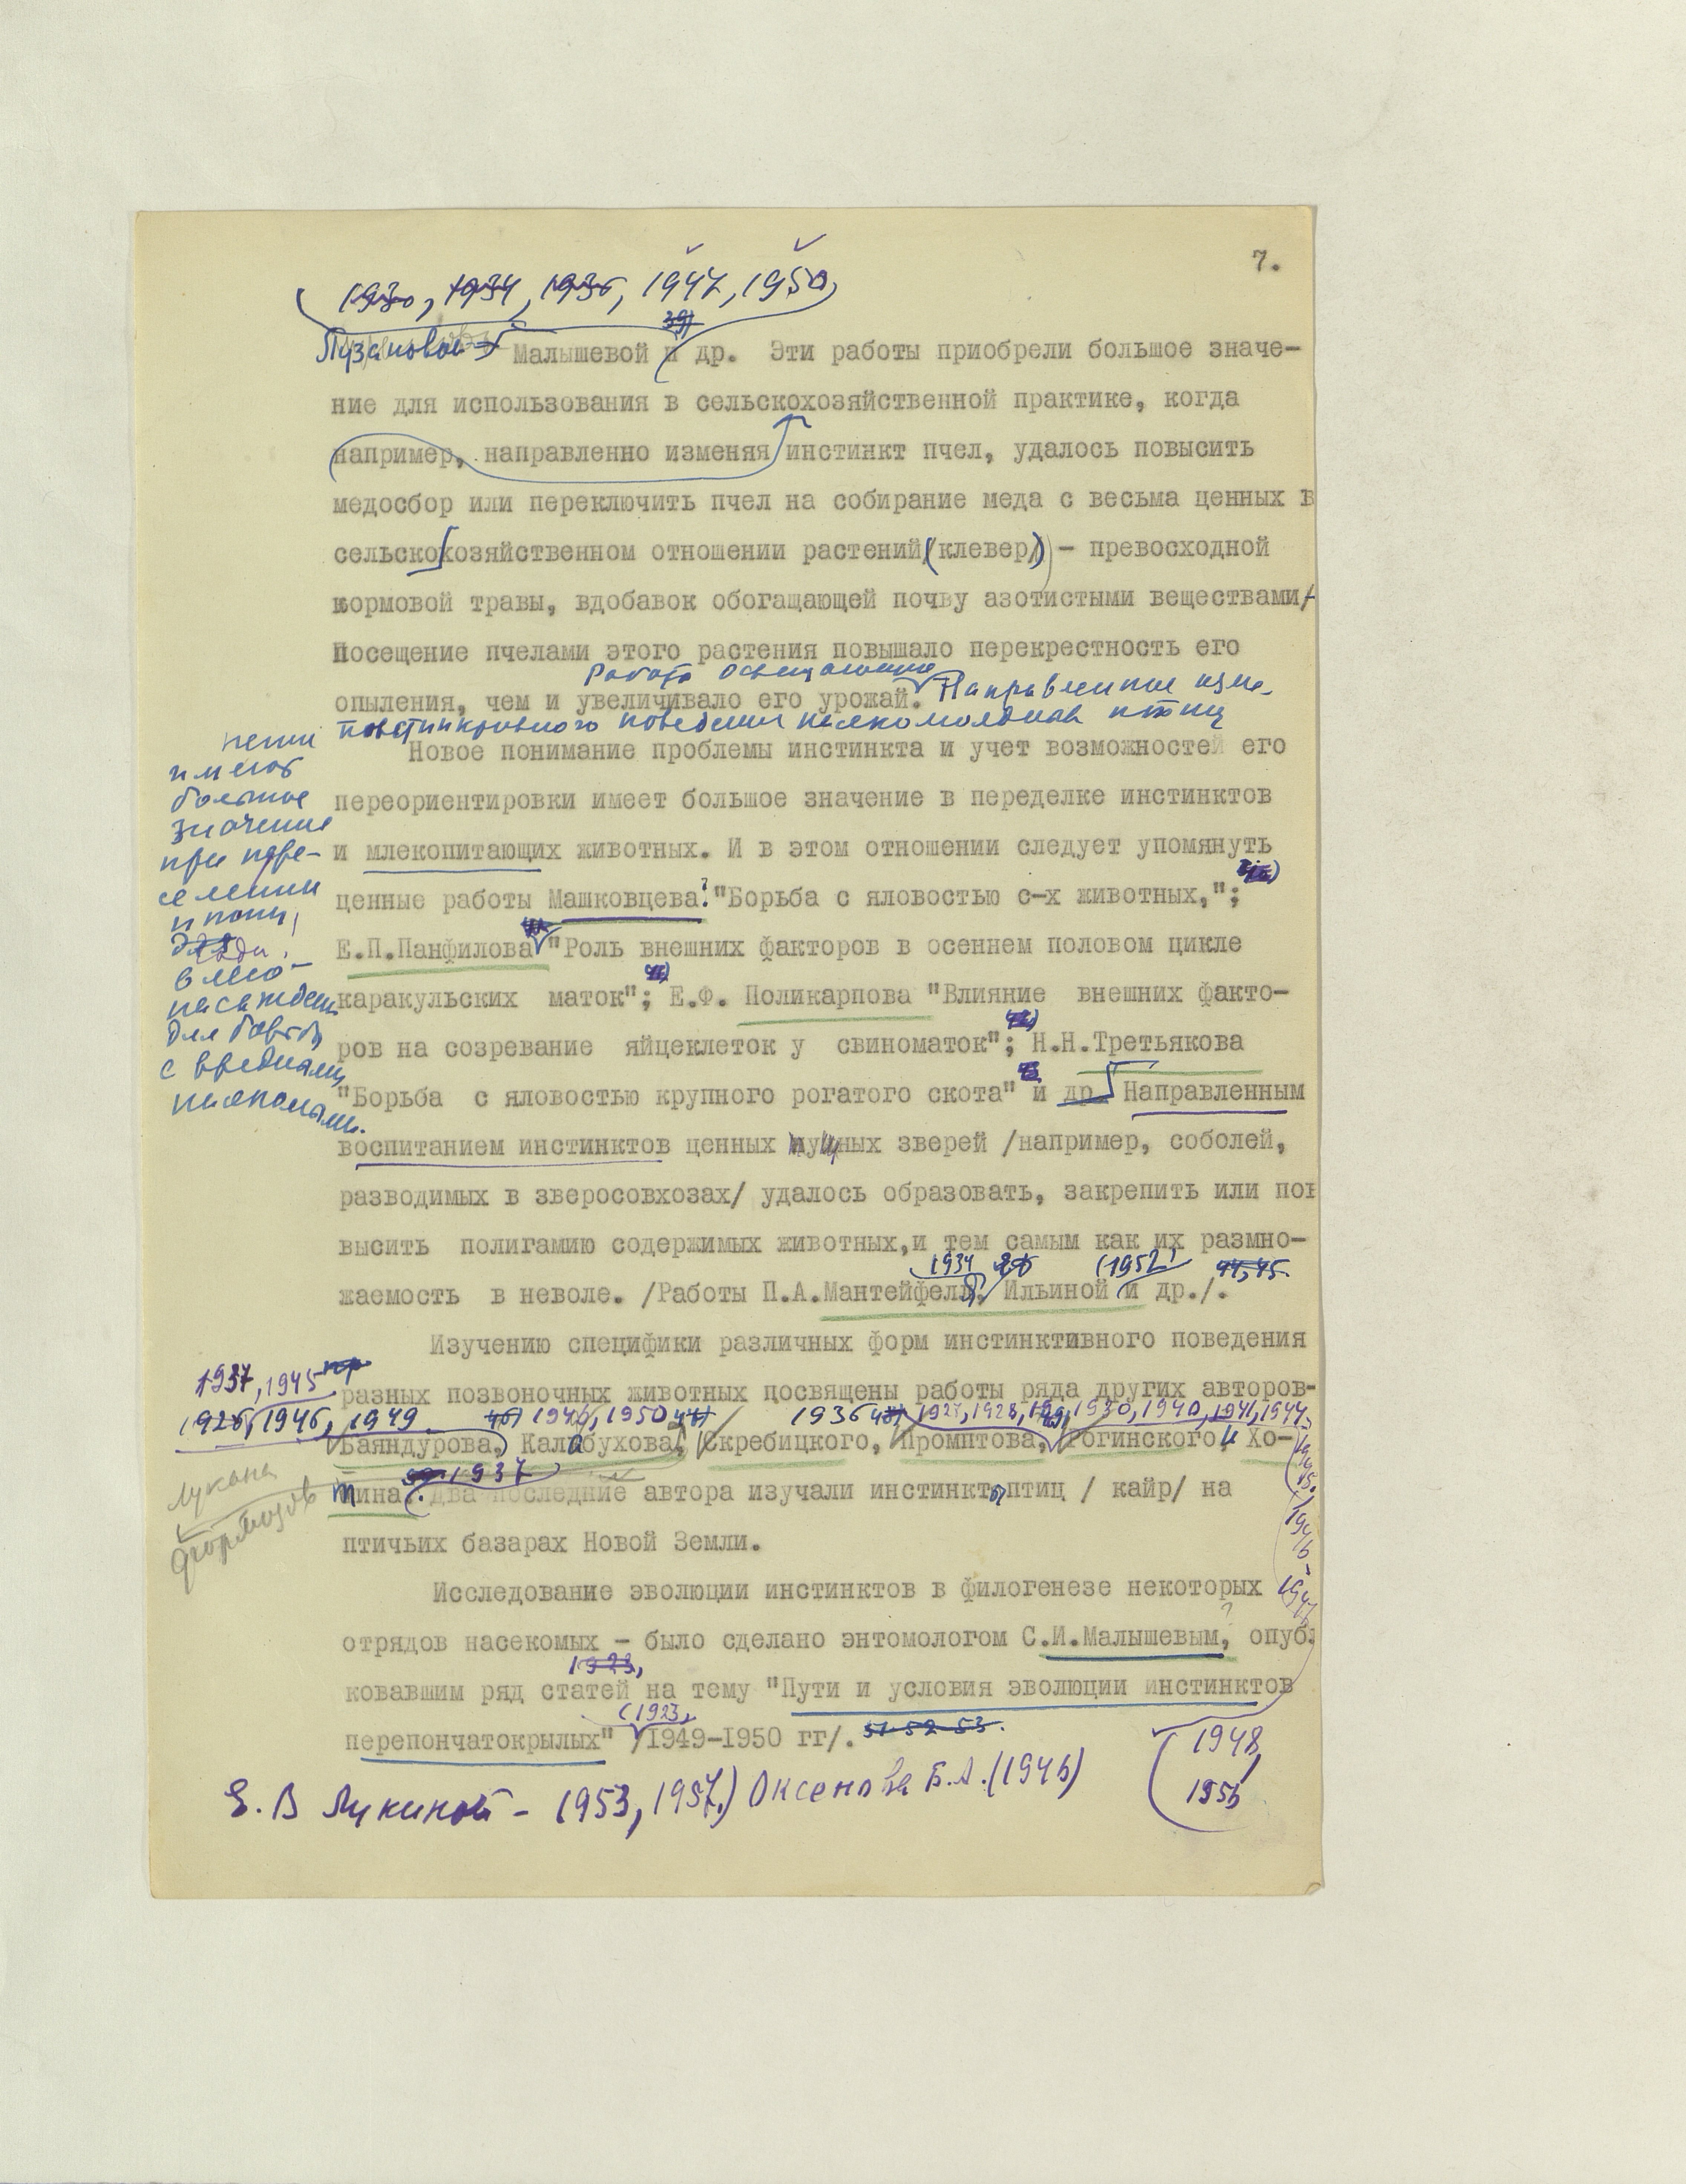 7.
1930, 1934, 1936, 1947, 1950,
39)
Пузановой Малышевой и др. Эти работы приобрели большое значе-
ние для использования в сельскохозяйственной практике, когда
например, направленно изменяя инстинкт пчел, удалось повысить
медосбор или переключить пчел на собирание меда с весьма ценных в
сельскохозяйственном отношении растений (клевер) - превосходной
кормовой травы, вдобавок обогащающей почву азотистыми веществами/
Посещение пчелами этого растения повышало перекрестность его
Работы
опыления, чем и увеличивало его урожай. Направленное изме-
поведения птиц
нении
имеют
большое
значение
при пере-
селении
в лесо-
насажден
для борьбы
с вредными
насекомыми.
Новое понимание проблемы инстинкта и учет возможностей его
переориентировки имеет большое значение в переделке инстинктов
и млекопитающих животных. И в этом отношении следует упомянуть
ценные работы Машковцева: "Борьба с яловостью с-х животных,";
Е.П.Панфилова "Роль внешних факторов в осеннем половом цикле
каракульских маток"; Е.Ф. Поликарпова "Влияние внешних факто-
ров на созревание яйцеклеток у свиноматок"; Н.Н.Третьякова
"Борьба с яловостью крупного рогатого скота" и др. Направленным
воспитанием инстинктов ценных пушных зверей /например, соболей,
разводимых в зверосовхозах/ удалось образовать, закрепить или пов
высить полигамию содержимых животных,и тем самым как их размно-
1934 (1952) 44,45.
жаемость в неволе. /Работы П.А.Мантейфеля, Ильиной и др./.
Изучению специфики различных форм инстинктивного поведения
1937, 1945
разных позвоночных животных посвящены работы ряда других авторов-
1926, 1946, 1949 46) 1946, 1950 47) 1936 48) 1927, 1928, 1930, 1940, 1941, 1944,
Баяндурова, Калабухова, Скребицкого, Промптова, Рогинского и Хо-
1945.
1946,
1947
1937
тина. Два последние автора изучали инстинкты птиц / кайр/ на
Лукана
Формозов
птичьих базарах Новой Земли.
Исследование эволюции инстинктов в филогенезе некоторых
отрядов насекомых - было сделано энтомологом С.И.Малышевым, опуб
1923,
ковавшим ряд статей на тему "Пути и условия эволюции инстинктов
(1923,
перепончатокрылых" /1949-1950 гг/. 51-52-53.
(1948,
1956
Е.В Лукиной - 1953, 1957.) Оксенова Б.А. (1946)